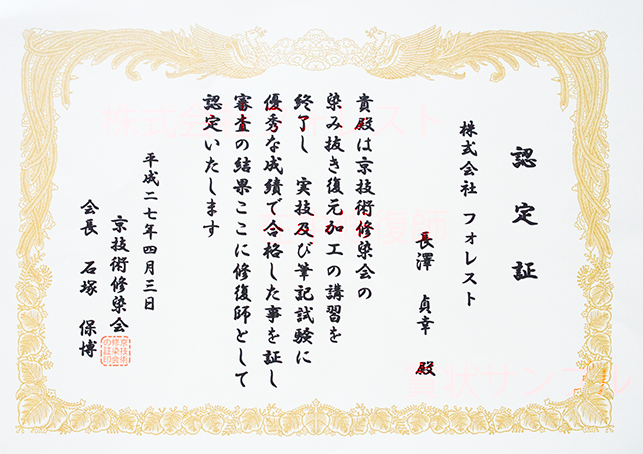 認定証
株式会社 フォレスト
長澤 貞幸 殿
貴殿は京技術修染会の
染み抜き復元加工の講習を
終了し 実技及び筆記試験に
優秀な成績で合格した事を証し
審査の結果ここに修復師として
認定いたします
平成二七年四月三日
京技術修染会
会長 石塚 保博
京技術
修染会
の証印
株式会社フォレスト
修復師
賞状サンプル